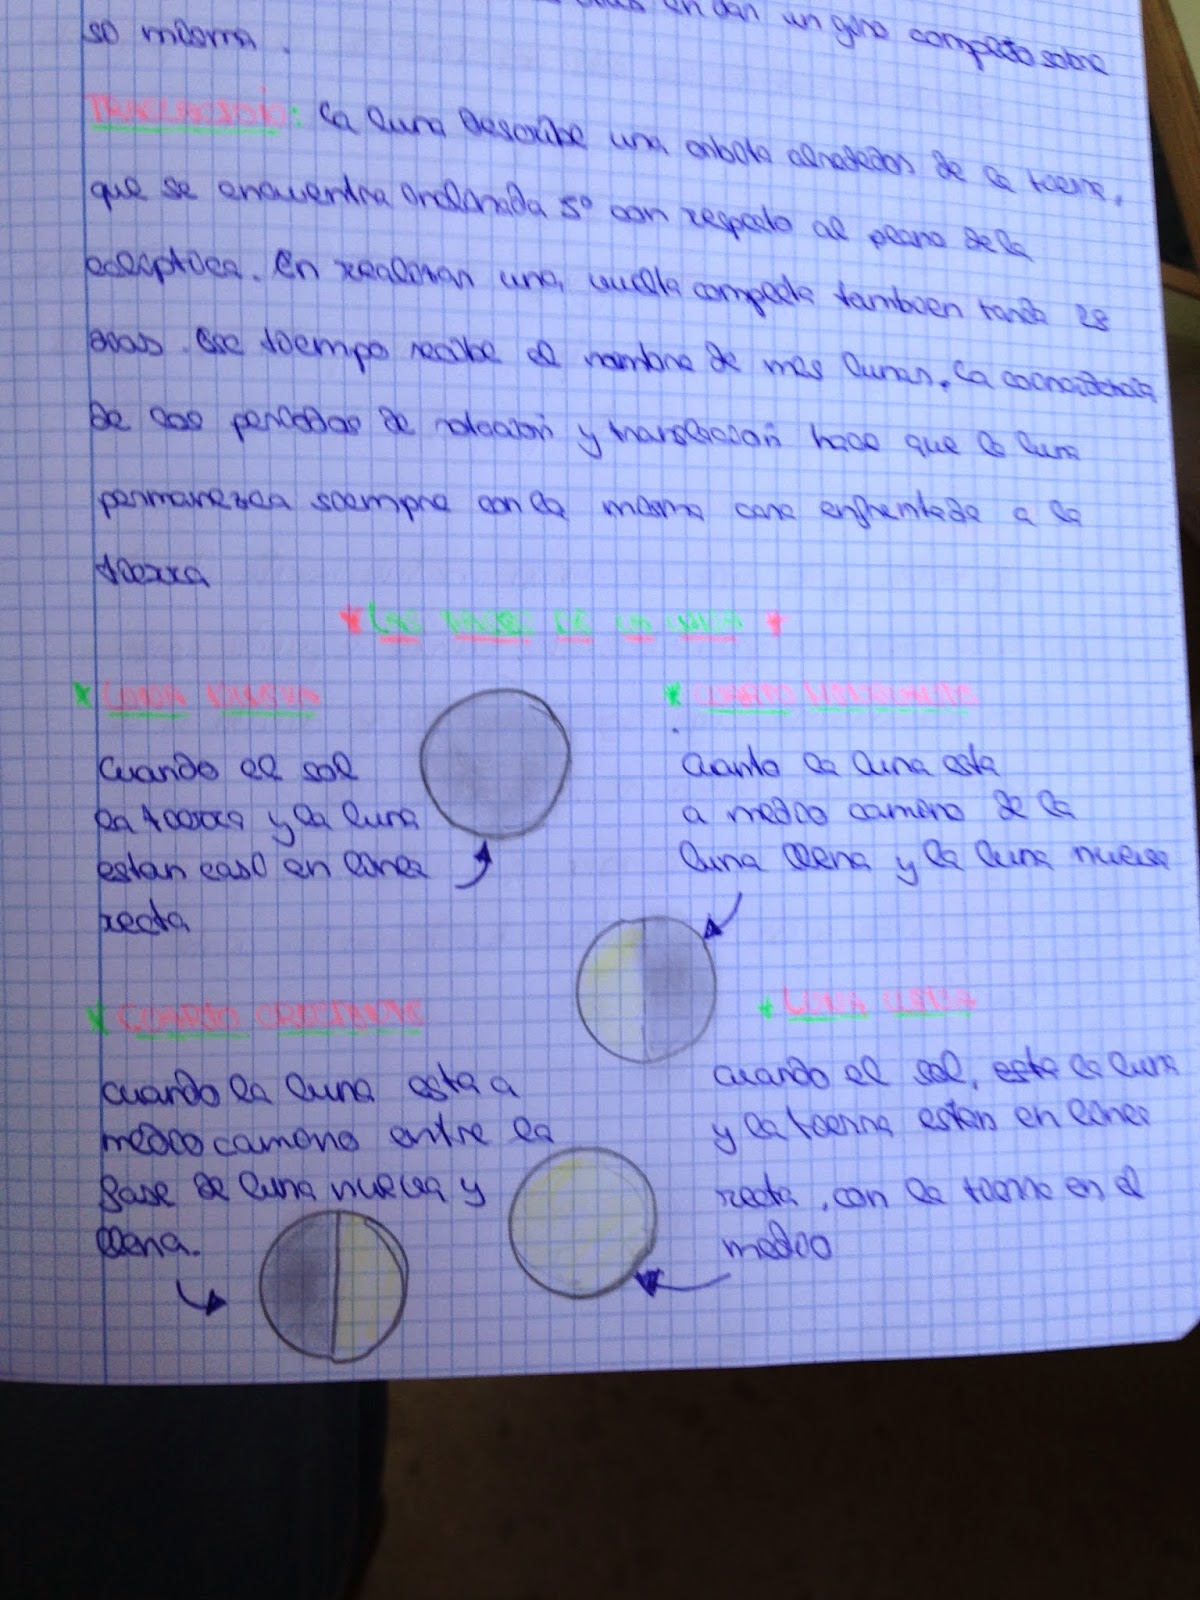 en dan un giro completo sobre
si misma.
TRASLACIÓ: La luna describe una orbita alrededor de la tierra,
que se encuentra inclinada 5º con respecto al plano de la
ecliptica. En realizar una vuelta completa tambien tarda 28
dias. Ese tiempo recibe el nombre de mes lunar. La coincidencia
de los periodos de rotación y translación hace que la luna
permanezca siempre con la misma cara enfrentada a la
tierra
* LAS FASES DE LA LUNA *
* LUNA NUEVA
cuando el sol
la tierra y la luna
estan casi en linea
recta
* CUARTO MENGUANTE
cuanto la luna esta
a medio camino de la
luna llena y la luna nueva
* CUARTO CRECIENTE
cuando la luna esta a
medio camino entre la
fase de luna nueva y
llena.
* LUNA LLENA
cuando el sol, esta la luna
y la tierra estan en linea
recta, con la tierra en el
medio